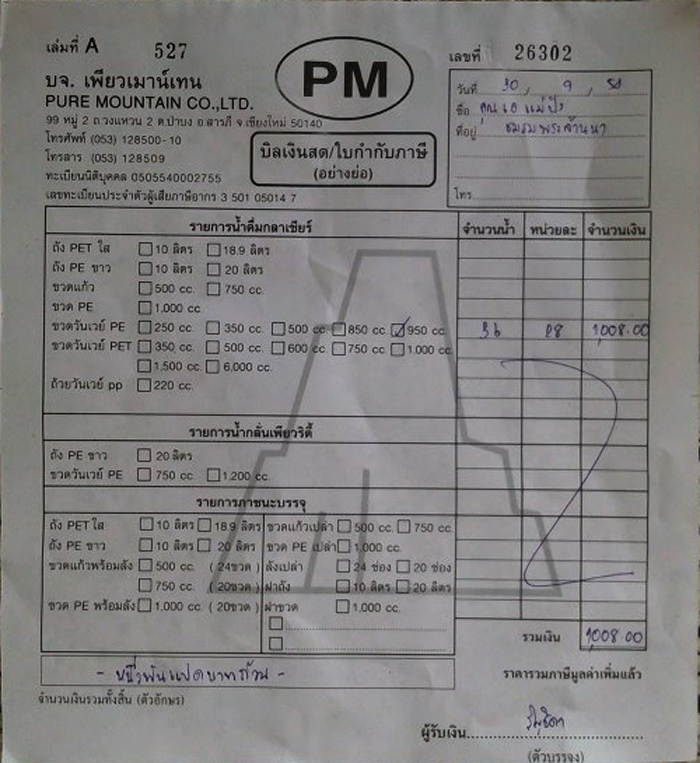 เล่มที่ A 527
PM
เลขที่ 26302
บจ. เพียวเมาน์เทน
PURE MOUNTAIN CO.,LTD.
99 หมู่ 2 ถ.วงแหวน 2 ต.ป่าบง อ.สารภี จ.เชียงใหม่ 50140
โทรศัพท์ (053) 128500-10
โทรสาร (053) 128509
ทะเบียนนิติบุคคล 0505540002755
เลขทะเบียนประจำตัวผู้เสียภาษีอากร 3 501 05014 7
บิลเงินสด/ใบกำกับภาษี
(อย่างย่อ)
วันที่ 30, 9, 58
ชื่อ คุณเอ แม่ปิง
ที่อยู่ ชมรมพระล้านนา
โทร.
รายการน้ำดื่มกลาเซียร์ จำนวนน้ำ หน่วยละ จำนวนเงิน
ถัง PET ใส 10 ลิตร 18.9 ลิตร
ถัง PE ขาว 10 ลิตร 20 ลิตร
ขวดแก้ว 500 cc. 750 cc.
ขวด PE 1,000 cc.
ขวดวันเวย์ PE 250 cc. 350 cc. 500 cc. 850 cc. 950 cc. 36 28 1,008.00
ขวดวันเวย์ PET 350 cc. 500 cc. 600 cc. 750 cc. 1,000 cc.
1,500 cc. 6,000 cc.
ถ้วยวันเวย์ pp 220 cc.
รายการน้ำกลั่นเพียวริตี้
ถัง PE ขาว 20 ลิตร
ขวดวันเวย์ PE 750 cc. 1,200 cc.
รายการภาชนะบรรจุ
ถัง PET ใส 10 ลิตร 18.9 ลิตร ขวดแก้วเปล่า 500 cc. 750 cc.
ถัง PE ขาว 10 ลิตร 20 ลิตร ขวด PE เปล่า 1,000 cc.
ขวดแก้วพร้อมลัง 500 cc. (24ขวด) ลังเปล่า 24 ช่อง 20 ช่อง
750 cc. (20ขวด) ฝาถัง 10 ลิตร 20 ลิตร
ขวด PE พร้อมลัง 1,000 cc. (20ขวด) ฝาขวด 1,000 cc.
รวมเงิน 1,008.00
- หนึ่งพันแปดบาทถ้วน -
ราคารวมภาษีมูลค่าเพิ่มแล้ว
จำนวนเงินรวมทั้งสิ้น (ตัวอักษร)
ผู้รับเงิน
(ตัวบรรจง)